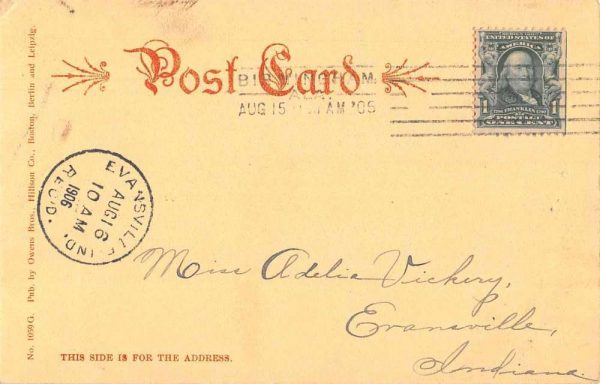 Post Card
BIRMINGHAM
ALA.
AUG 15 AM '06
SERIES 1902
UNITED STATES OF
AMERICA
1 FRANKLIN 1
POSTAGE
ONE CENT
EVANSVILLE, IND.
AUG 16
10 AM
1906
REC'D.
Miss Adelia Vickery,
Evansville,
Indiana
THIS SIDE IS FOR THE ADDRESS.
No. 1059 G. Pub. by Owens Bros., Hillson Co., Boston, Berlin and Leipzig.